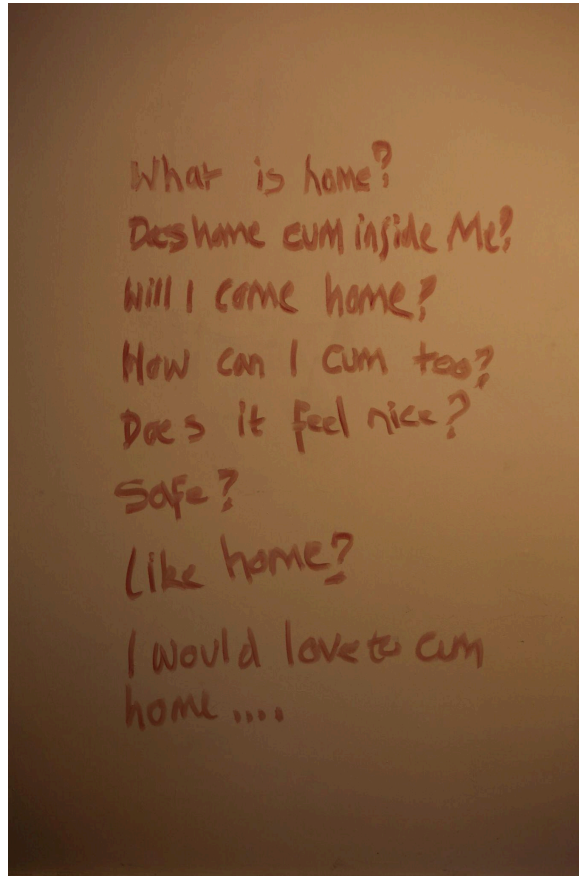 What is home?
Does home cum inside Me?
Will I come home?
How can I cum too?
Does it feel nice?
Safe?
Like home?
I would love to cum
home....